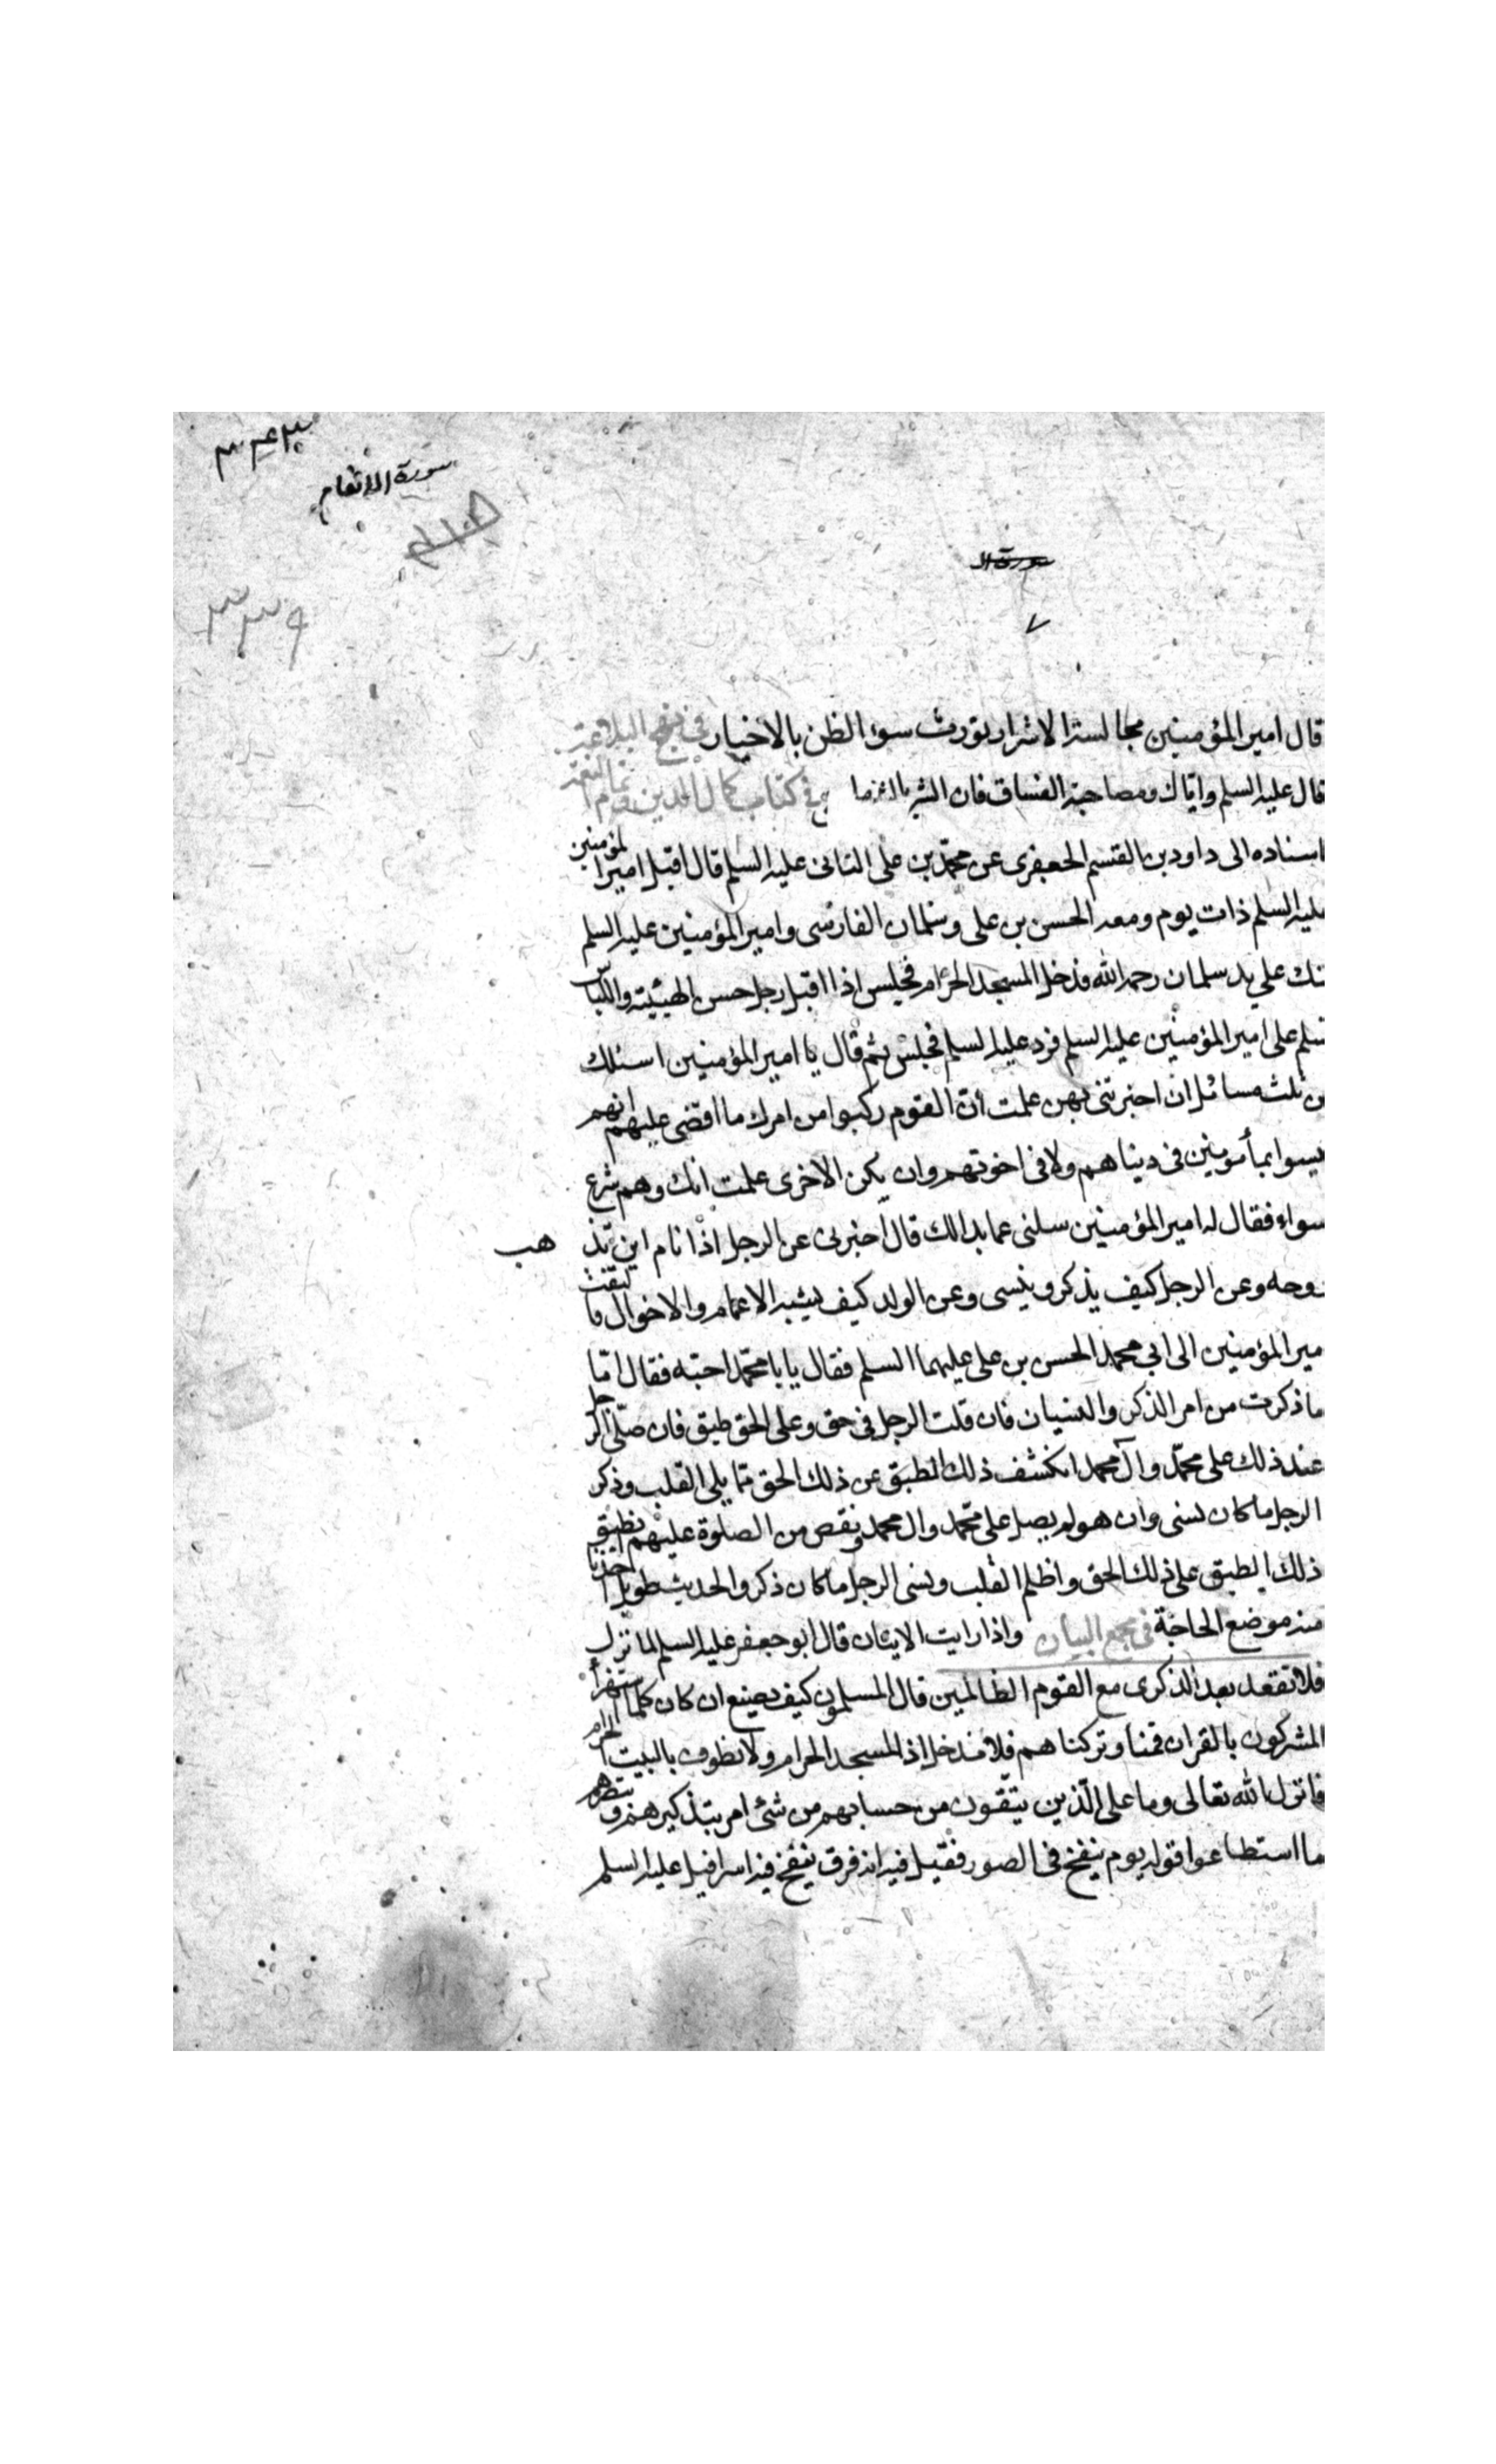 سورة الانعام
٣٣٩
سورة ال
٧
قال امير المؤمنين مجالسة الاشرار تورث سوء الظن بالاخيار في نهج البلاغة
قال عليه السلم واياك ومصاحبة الفساق فان الشر بالشر في كتاب كمال الدين وتمام النعمة
اسناده الى داود بن القسم الجعفرى عن محمد بن على الثانى عليه السلم قال اقبل امير المؤمنين
عليه السلم ذات يوم ومعه الحسن بن على وسلمان الفارسى وامير المؤمنين عليه السلم
على يد سلمان رحمه الله فدخل المسجد الحرام فجلس اذا اقبل رجل حسن الهيئة واللباس
سلم على امير المؤمنين عليه السلم فرد عليه السلم فجلس ثم قال يا امير المؤمنين اسئلك
عن ثلث مسائل ان اخبرتنى بهن علمت ان القوم ركبوا من امرك ما اقضى عليهم انهم
ليسوا بمأمونين فى دينا هم ولا فى اخوتهم وان يكن الاخرى علمت انك وهم شرع
سواء فقال له امير المؤمنين سلنى عما بدالك قال اخبرنى عن الرجل اذا نام اين تذ
هب
روحه وعن الرجل كيف يذكر وينسى وعن الولد كيف يشبه الاعمام والاخوال فالتفت
مير المؤمنين الى ابي محمد الحسن بن على عليهما السلم فقال يا با محمد اجبه فقال اما
ما ذكرت من امر الذكر والنسيان فان قلت الرجل فى حق وعلى الحق طبق فان صلى الرجل
عند ذلك على محمد وآل محمد انكشف ذلك الطبق عن ذلك الحق مما يلى القلب وذكر
الرجل ما كان نسى وان هو لم يصل على محمد وال محمد ونقص من الصلوة عليهم تطبق
ذلك الطبق على ذلك الحق واظلم القلب ونسى الرجل ما كان ذكر والحديث طويل اخذنا
منه موضع الحاجة فى مجمع البيان واذا رايت الايتان قال ابو جعفر عليه السلم لما نزلت
فلا تقعد بعد الذكرى مع القوم الظالمين قال المسلمون كيف نصنع ان كان كلما استهزأ
المشركون بالقران قمنا وتركناهم فلا ندخل اذا المسجد الحرام ولا نطوف بالبيت الحرام
فانزل الله تعالى وما على الذين يتقون من حسابهم من شئ امر بتذكيرهم و
ما استطاعوا قوله يوم ينفخ فى الصور فقيل فيه انه قرن ينفخ فيه اسرافيل عليه السلم